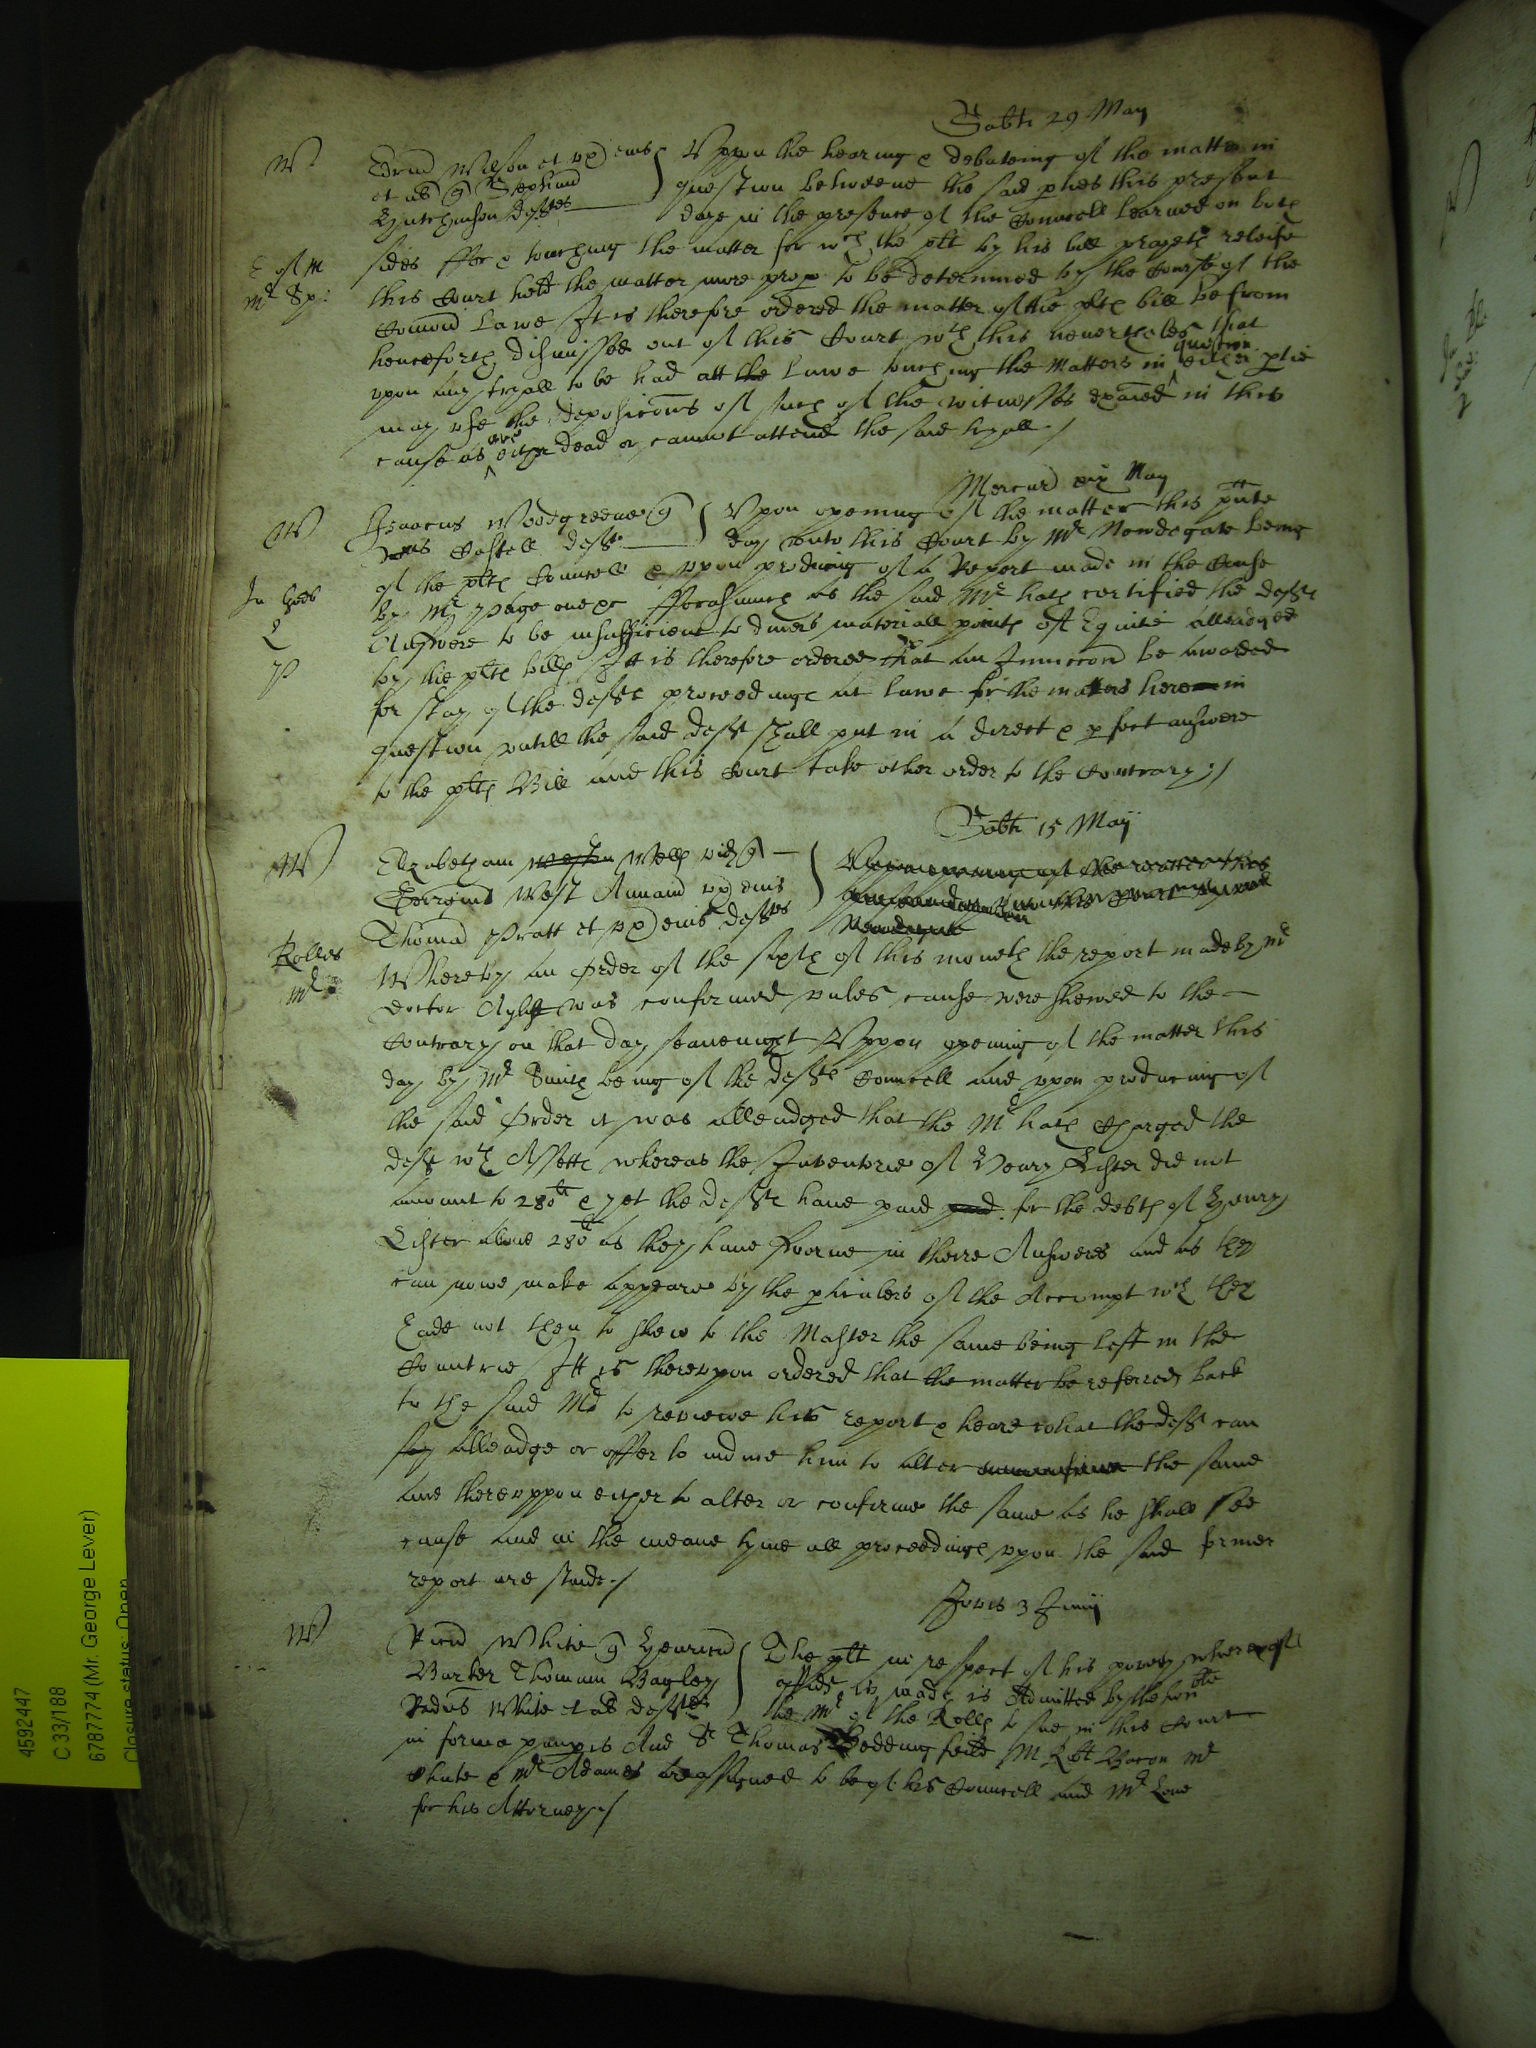 Sabti 29 May
W
Edrūd Wilson et ux eius
et al q Stephanū
Hutchinson deftes
Uppon the hearing & debateing of the matter in
question betweene the said pties this present
daye in the presence of the Councell learned on both
sides ffor & touching the matter for wch the plt by his bill prayeth releife
Mr Sp:
this Court held the matter more prop to be determined by the Course of the
Comōn Lawe It is therefore ordered the matter of the plts bill be from
henceforth dismissed out of this Court wth this neverthles that
upon any tryall to be had att the Lawe touching the Matters in question either ptie
may use the deposicōns of such of the witnesses exaīed in this
cause as are either dead or cannot attend the said tryall ./
Mercurij xix May
W
Isaacus Woodgreene q
Castell deft
Upon opening of the matter this pnte
day unto this Court by Mr Newdegate being
of the plts Councell & upon produceing of a Report made in the Cause
by Mr Page one &c fforasmuch as the said Mr hath certified the defts
Answere to be insufficient to divers materiall points of Equitie alleadged
by the plts bill It is therefore ordered that an Iniuccōn be awarded
for stay of the defts proceedings at Lawe for the matters here in
question untill the said deft shall put in a direct & pfect answere
to the plts Bill and this Court take other order to the Contrary ./
Sabti 15 May
W
Elizabetham Weston Well vid q
West Annam ux eius
Thomā Pratt et ux eius deftes
Upon opening of the matter this
present day unto this Court by Mr
Newdigate
Rolles
Mr
Whereby an Order of the sixth of this moneth the report made by Mr
Doctor was confirmed unles cause were shewed to the
Contrary on that day seavenight Uppon opening of the matter this
day by Mr Smith being of the defts Councell and upon produceing of
the said Order it was alleadged that the Mr hath Charged the
deft wth Assetts whereas the Inventorie of Henry Lister did not
amount to 280li & yet the defts have paid paid for the debts of Henry
Lister above 280li as they have sworne in theire Answers and as they
can nowe make appeare by the pticulers of the Accompt wch they
hade not then to shew to the Master the same being left in the
Countrie It is thereupon ordered that the matter be referred back
to the said Mr to reviewe his report & heare what the deft can
say alleadge or offer to induce him to alter the same
and thereuppon either to alter or confirme the same as he shall see
cause and in the meane tyme all proceedings upon the said former
report are staid ./
Jovis 3 Junij
W
Ricūs White q Henricū
Barker Thomam Bayley
White et al deftes
The plt in respect of his povertie whereof
affidt is made is Admitted by the honble
the Mr of the Rolls to sue in this Court
in forma paupis And Sr Thomas Beddingfeild Mr Robt Bacon Mr
Chute & Mr Adams are assigned to be of his Councell and Mr Lone
for his Attorney ./
4592447
C 33/188
6787774 (Mr. George Lever)
Closure status: Open